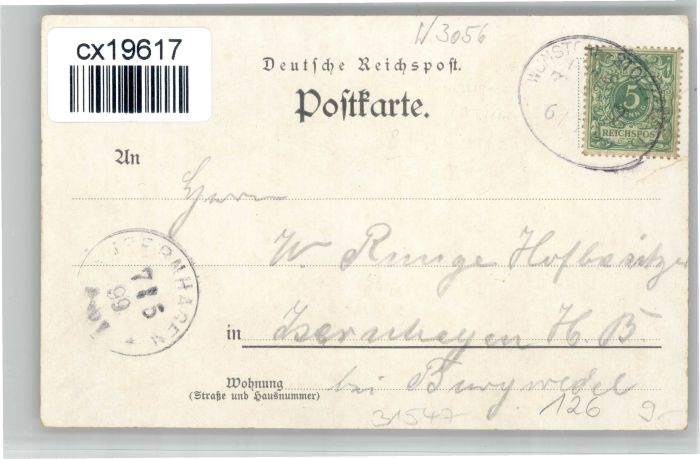 cx19617
W 3056
Deutsche Reichspost.
Postkarte.
WUNSTO
5
REICHSPOST
An
Herrn
W. Runge Hofbesitzer
ISERNHAGEN
7 5
99
in Isernhagen H. B.
Wohnung
(Straße und Hausnummer)
bei Burgwedel
31547
126
9-